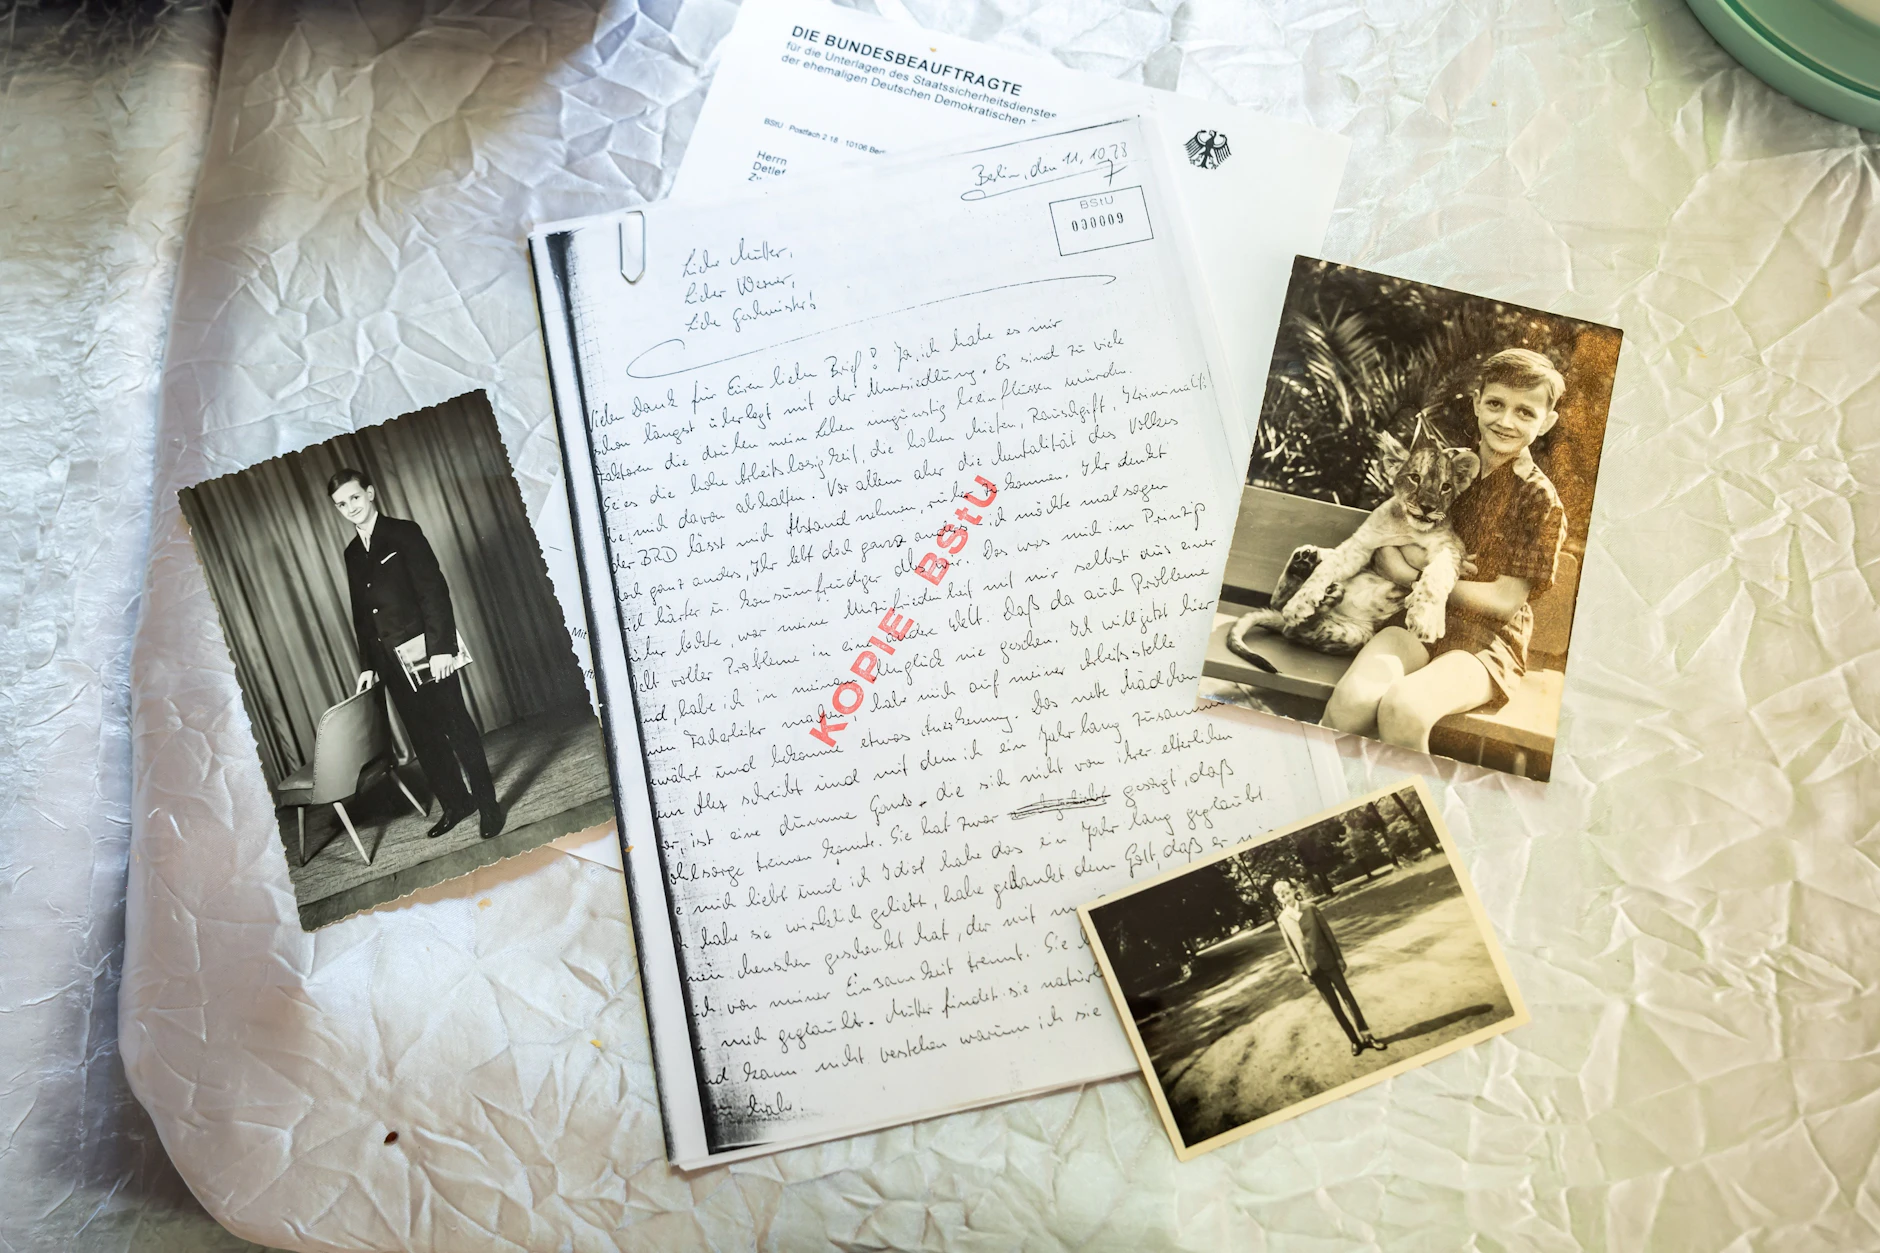 DIE BUNDESBEAUFTRAGTE
für die Unterlagen des Staatssicherheitsdienstes
der ehemaligen Deutschen Demokratischen
BStU Postfach 2 18 · 10106 Berl
Herrn
Detlef
Berlin, den 11.10.78
BStU
000009
Liebe Mutter,
Lieber Werner,
Liebe Geschwister!
Vielen Dank für Euren lieben Brief! Ja, ich habe es mir
schon längst überlegt mit der Umsiedlung. Es sind zu viele
Faktoren die drüben mein Leben ungünstig beeinflussen würden.
Sei es die hohe Arbeitslosigkeit, die hohen Mieten, Rauschgift, Kriminalit
die mich davon abhalten. Vor allem aber die Mentalität des Volkes
der BRD lässt mich Abstand nehmen, rüber zu kommen. Ihr denkt
doch ganz anders, Ihr lebt doch ganz anders ich möchte mal sagen
viel härter u. konsumfreudiger als wir. Das was mich im Prinzip
früher lockte, war meine Unzufriedenheit mit mir selbst aus einer
Welt voller Probleme in eine andere Welt. Daß da auch Probleme
sind, habe ich in meinem Unglück nie gesehen. Ich will jetzt hier
meinen Facharbeiter machen, habe mich auf meiner Arbeitsstelle
bewährt und bekomme etwas Anerkennung. Das nette Mädchen
schreibt und mit dem ich ein Jahr lang zusammen
war, ist eine dumme Gans, die sich nicht von ihrer elterlichen
trennen konnte. Sie hat zwar gesagt, daß
sie mich liebt und ich Idiot habe das ein Jahr lang geglaubt.
Ich habe sie wirklich geliebt, habe gedankt dem Gott, daß er mir
einen Menschen geschenkt hat, der mit
mich von meiner Einsamkeit trennt. Sie
mich geglaubt. Mutter findet sie natürl
und kann nicht verstehen warum ich sie
habe.
KOPIE BStU
Mit